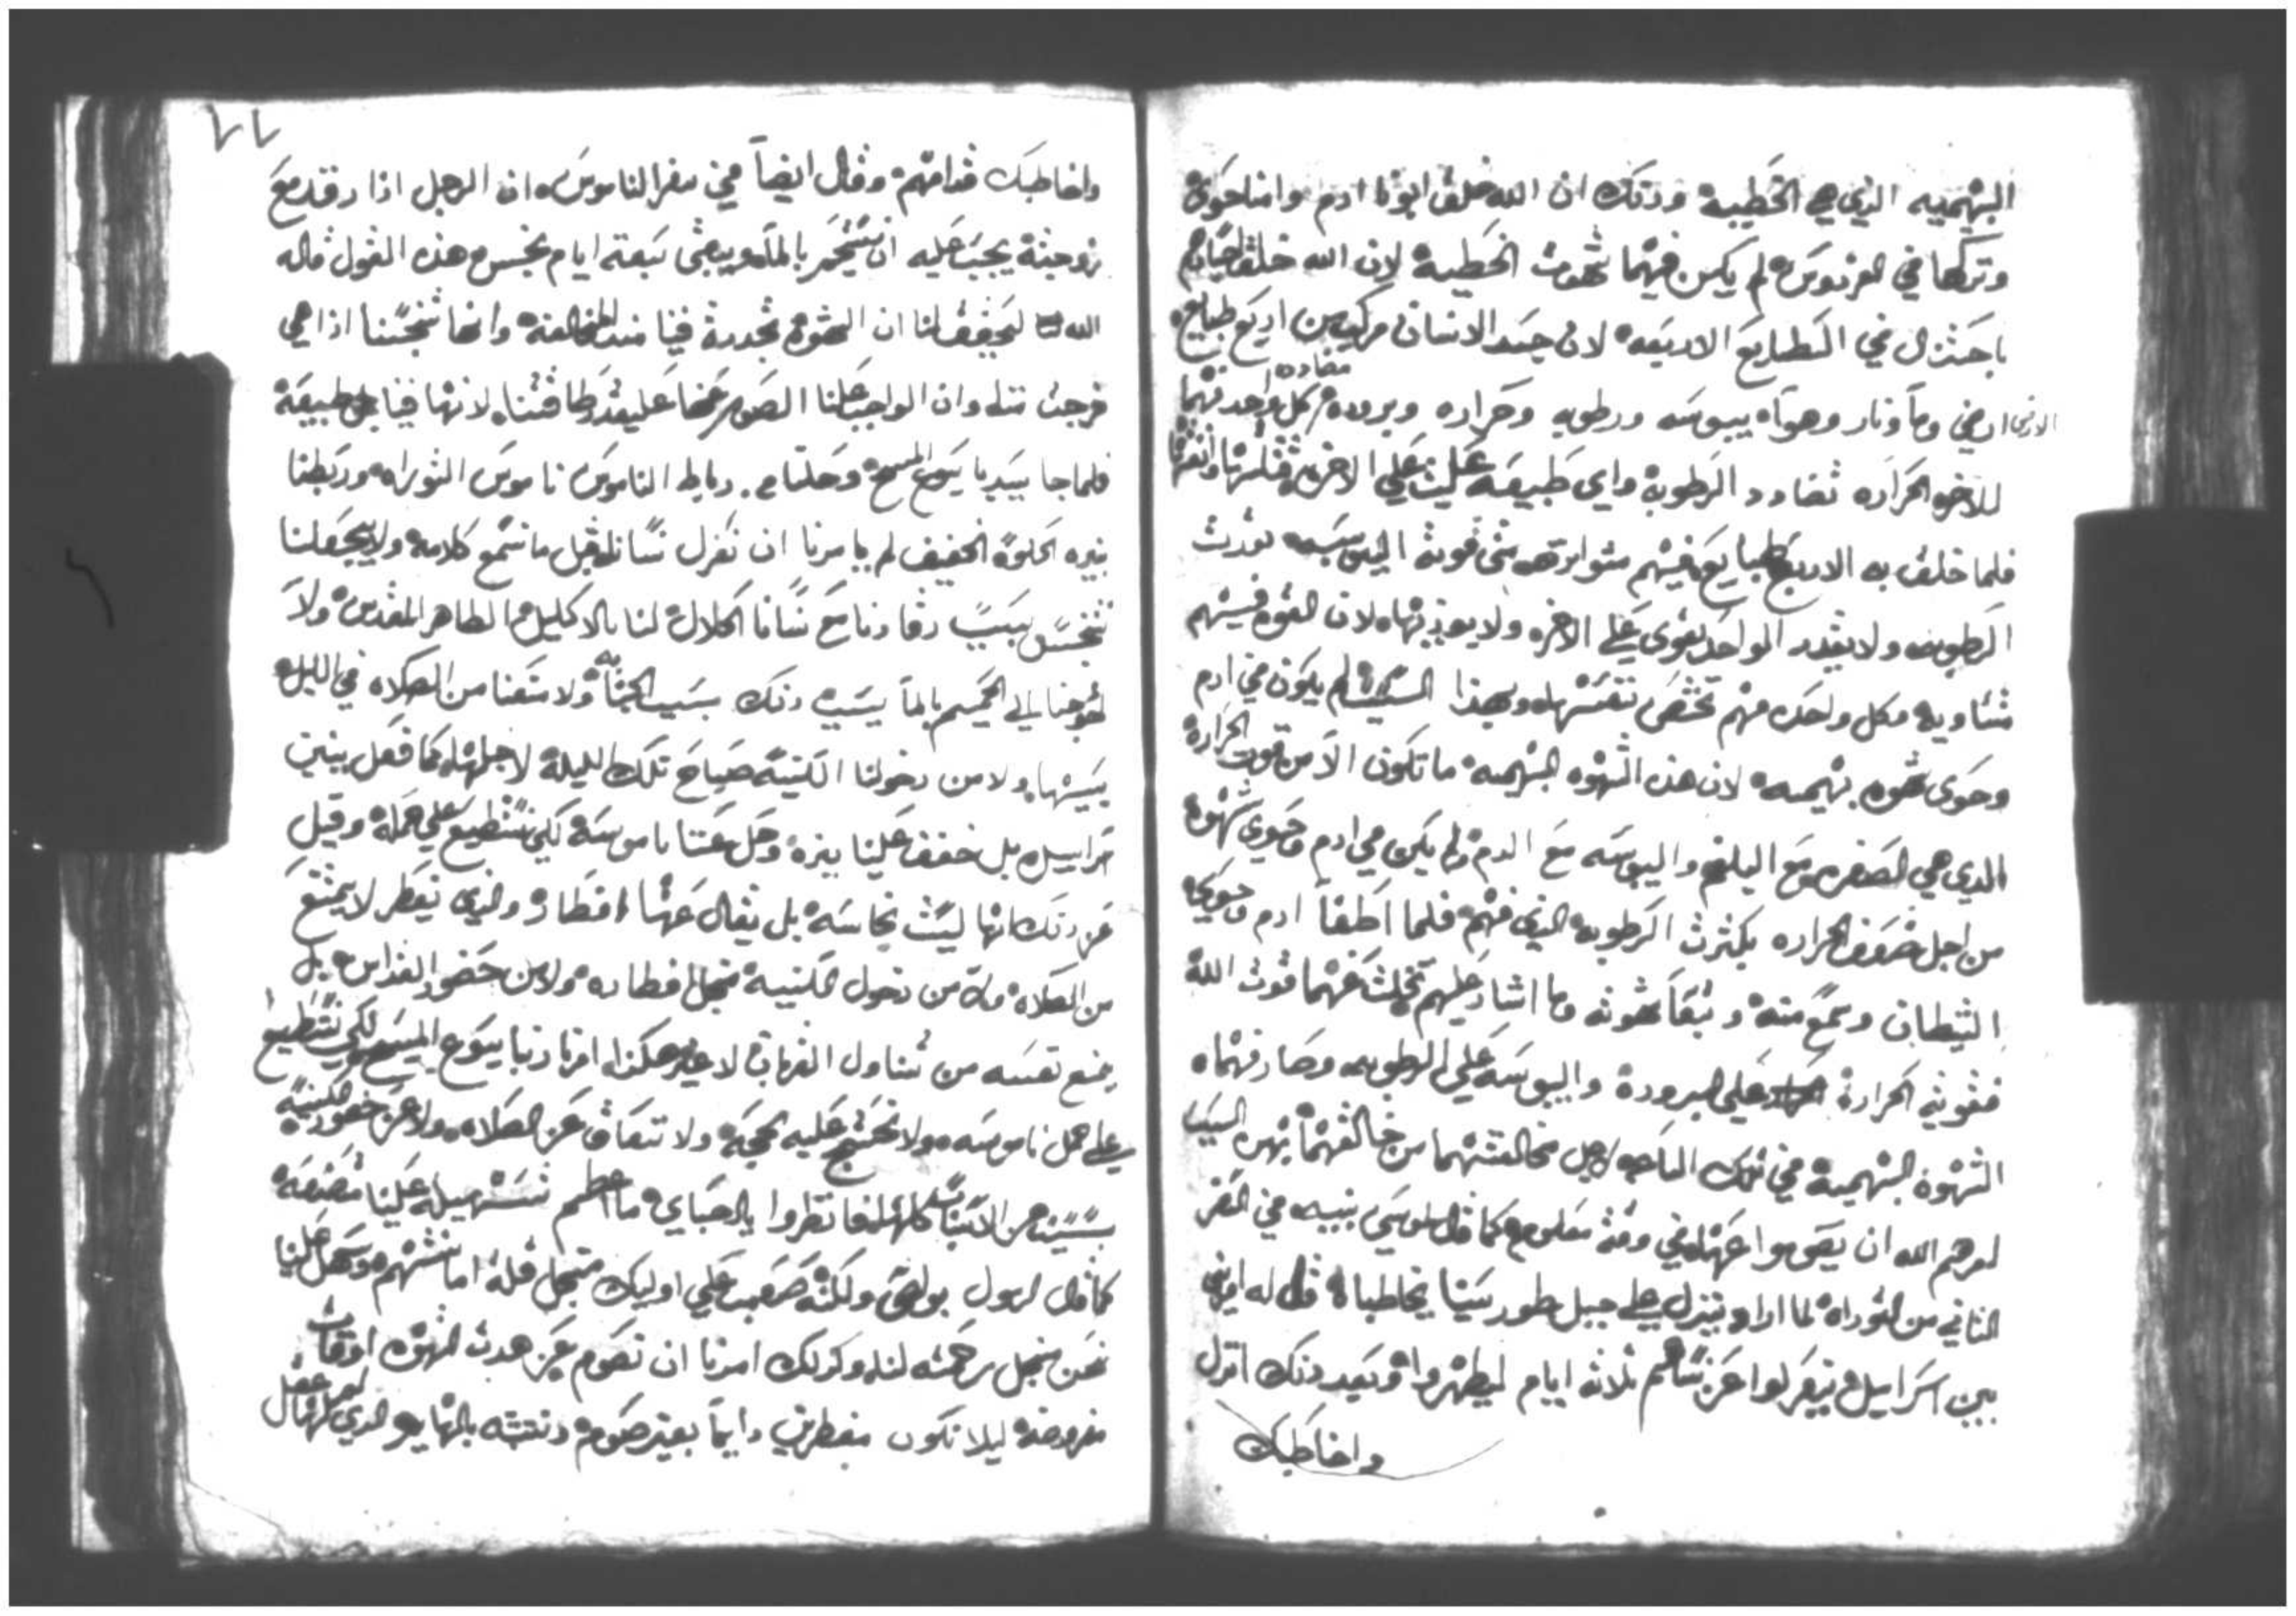 البهيميه الذي هي الخطيه وذلك ان الله خلق ابونا ادم وامنا حوى
وتركها في الفردوس لم يكن فيهما شهوت الخطيه لان الله خلق اجسادهم
باعتدال في الطبايع الاربعه لان جسد الانسان مركب من اربع طبايع
الارض ارضي وما ونار وهواه يبوسه ورطوبه وحراره وبروده كل واحد منهما مضاده
للاخره الحراره تضادد الرطوبه واي طبيعه غلبت علي الاخره قتلتها
فلما خلق به الاربع طبايع فيهم متوازيه متى قويت اليبوسه
الرطوبه ولا يقدر الواحد يقوى علي الاخره ولا يوذيها لان القوه فيهم
متساويه وكل واحده منهم تختص نفسها وبهذا السبب لم يكون في ادم
وحوى شهوه بهيميه لان هذه الشهوه البهيميه ما تكون الا من قوت الحراره
الذي هي الصفره مع البلغم واليبوسه مع الدم ولم يكن في ادم وحوى شهوه
من اجل ضعف الحراره بكثرت الرطوبه الذي فيهم فلما اطغا ادم وحوى
الشيطان وسمع منه وتبعا شهوته وما اشار عليهم تخلت عنهما قوت الله
فقويت الحراره علي البروده واليبوسه علي الرطوبه وصار فيهما
الشهوه البهيميه في تلك الساعه لاجل مخالفتهما من خالفهما بهده السبب
امرهم الله ان يصوموا عنها في وقت معلوم كما قال لموسى نبيه في السفر
الثاني من التوراه لما اراد ينزل علي جبل طور سينا يخاطبه قال له امر
بني اسراييل يعزلوا عن نساهم ثلاثه ايام ليطهروا وبعد ذلك انزل
واخاطبك
واخاطبك قدامهم وقال ايضا في سفر الناموس ان الرجل اذا رقد مع
زوجته يجب عليه ان يستحم بالما ويبقى سبعة ايام نجس هذه القول قاله
الله ليحقق لنا ان الشهوه تجددت فينا منذ المخالفه وانها تنجسنا اذا هي
خرجت منا وان الواجب علينا الصوم عنها علي قدر طاقتنا لانها فينا طبيعه
فلما جا سيدنا يسوع المسيح وحلنا من رباط الناموس ناموس التوراه وربطنا
بنيره الحلو الخفيف لم يامرنا ان نعزل نسانا قبل ما نسمع كلامه ولا يجعلنا
نتنجس بسبب رقادنا مع نسانا الحلال لنا بالاكليل الطاهر المقدس ولا
احوجنا الي الحميم بالما بسبب ذلك بسبب الجنابه ولا منعنا من الصلاه في الليل
بسببها ولا من دخولنا الكنيسه صباح تلك الليله لاجلها كما فعل ببني
اسراييل بل خفف علينا نيره وحل عنا ناموسه لكي نستطيع علي حمله وقيل
عن ذلك انها ليست نجاسه بل يقال عنها افطار والذي يفطر لا يمتنع
من الصلاه ولا من دخول الكنيسه منجل افطاره ولا من حضور القداس بل
يمنع نفسه من تناول القربان لا غير هكذا امرنا ربنا يسوع المسيح لكي نستطيع
علي حمل ناموسه ولا نحتج عليه بحجه ولا نتعاق عن الصلاه ولا عن حضور الكنيسه
بسبب من الاسباب كلها فانظروا يا احباي ما اعظم تسهيله علينا
كما قال الرسول بولص ولكنه صعب علي اوليك منجل قلة امانتهم وسهل علينا
نحن منجل رحمته لنا وكذلك امرنا ان نصوم عن هذه الشهوه اوقات
مفروضه ليلا نكون مفطرين دايما بغير صوم ونتشبه بالبهايم الذي ليس لها عقل